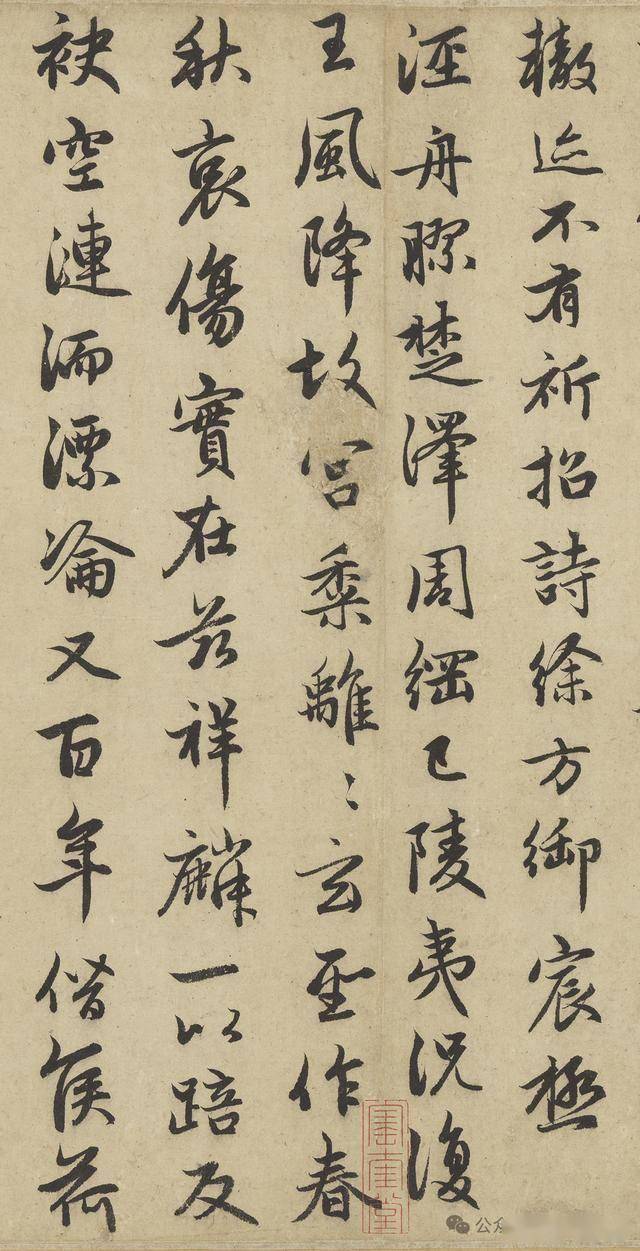 轍迹不有祈招詩徐方御宸極
涇舟膠楚澤周綱已陵夷況復
王風降故宮黍離〻玄聖作春
秋哀傷實在兹祥麟一以踣反
袂空漣洏漂淪又百年僭侯荷
公众